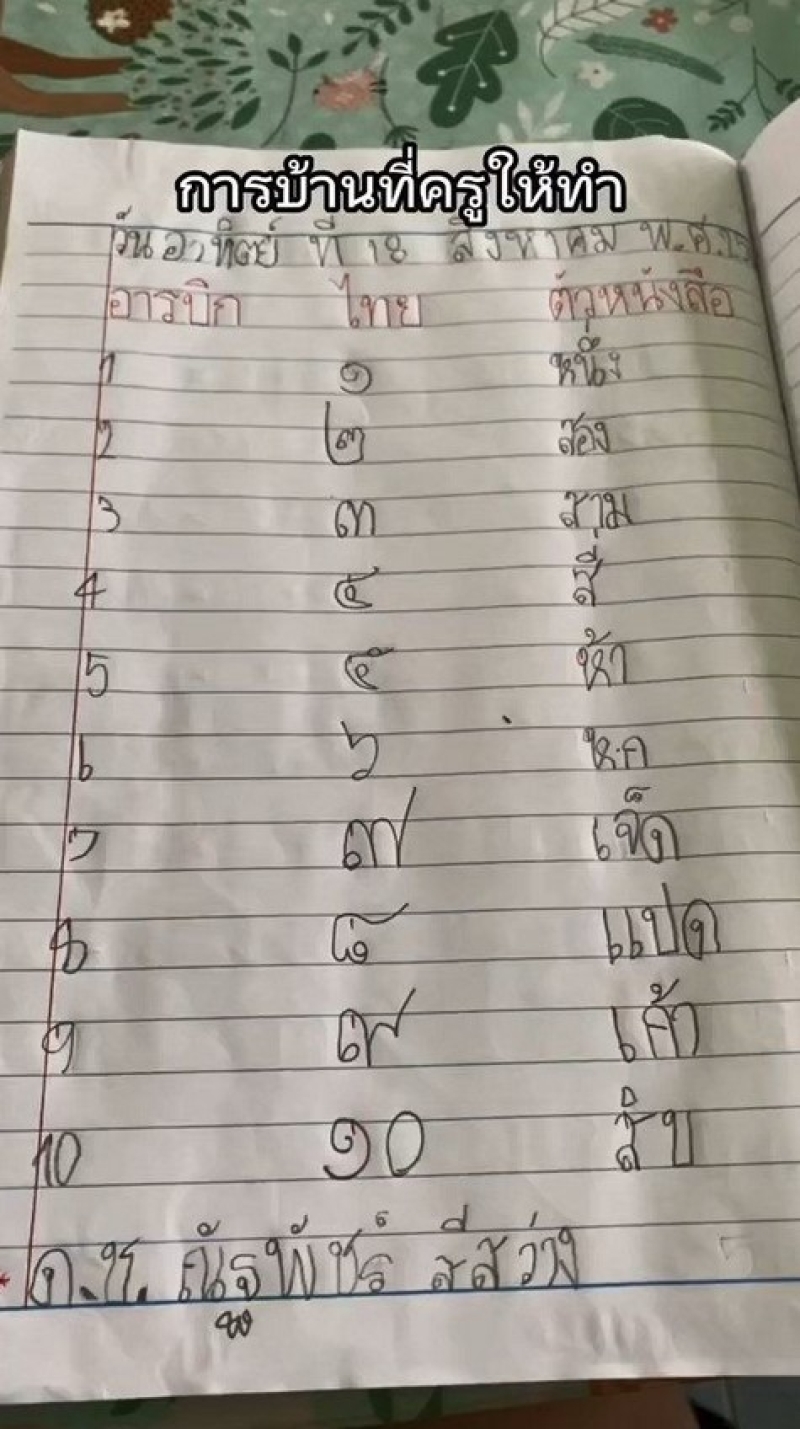 การบ้านที่ครูให้ทำ
วันอาทิตย์ ที่ 18 สิงหาคม พ.ศ.25
อารบิก ไทย ตัวหนังสือ
1 ๑ หนึ่ง
2 ๒ สอง
3 ๓ สาม
4 ๔ สี่
5 ๕ ห้า
6 ๖ หก
7 ๗ เจ็ด
8 ๘ แปด
9 ๙ เก้า
10 ๑๐ สิบ
ด.ช. ณัฐพัชร์ สีสว่าง